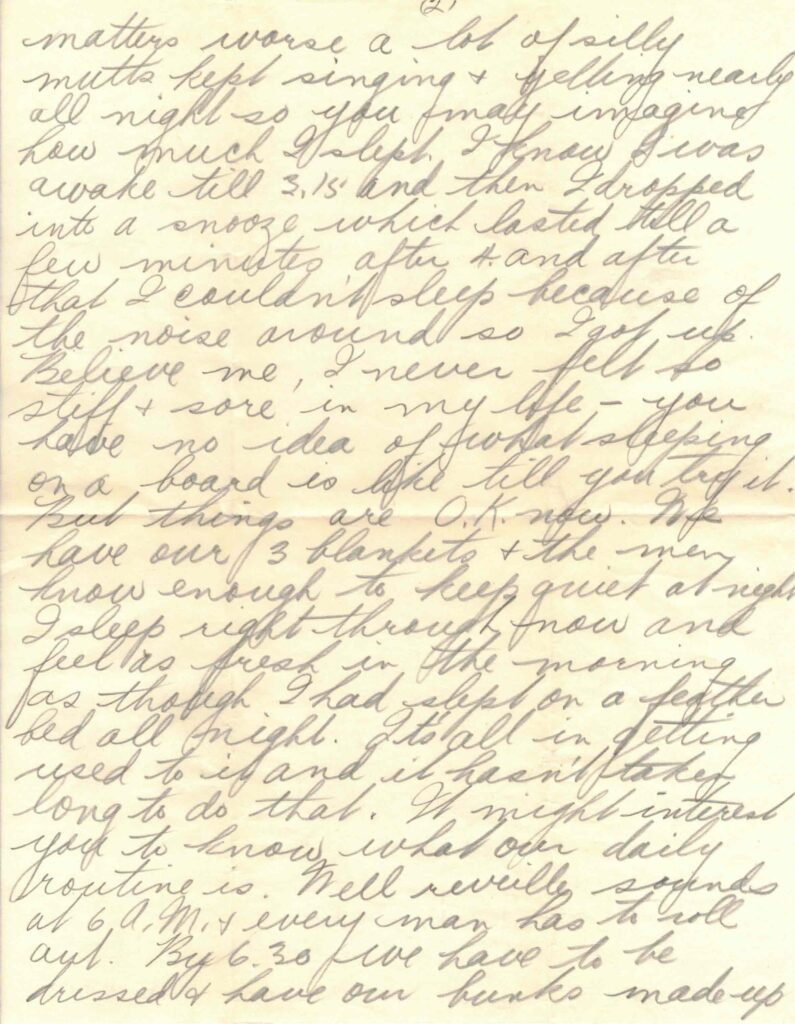 (2)
matters worse a lot of silly
mutts kept singing & yelling nearly
all night so you may imagine
how much I slept. I know I was
awake till 3.15 and then I dropped
into a snooze which lasted till a
few minutes after 4. and after
that I couldn't sleep because of
the noise around so I got up.
Believe me, I never felt so
stiff & sore in my life – you
have no idea of what sleeping
on a board is like till you try it.
But things are O.K. now. We
have our 3 blankets & the men
know enough to keep quiet at night
I sleep right through now and
feel as fresh in the morning
as though I had slept on a feather
bed all night. It's all in getting
used to it and it hasn't taken
long to do that. It might interest
you to know what our daily
routine is. Well reveille sounds
at 6 A.M. & every man has to roll
out. By 6.30 we have to be
dressed & have our bunks made up